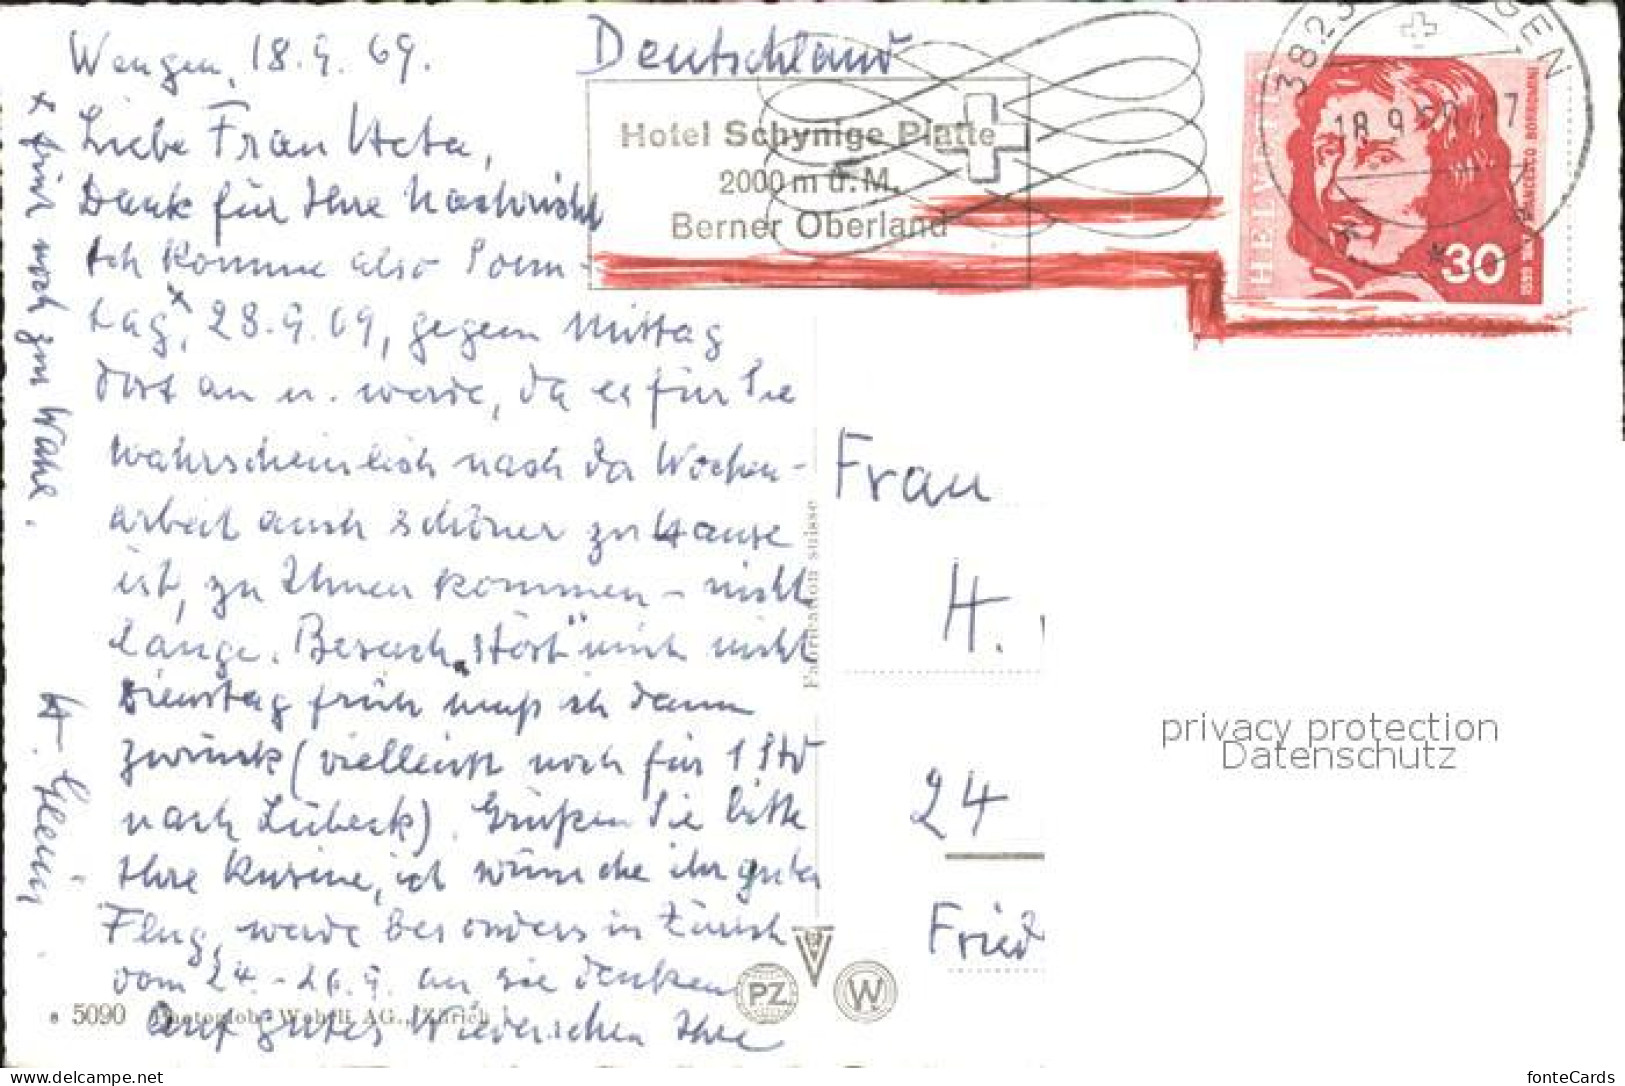 Wengen, 18.9.69.
Deutschland
Liebe Frau Heta,
Dank für Ihre Nachricht
Ich komme also Sonn-
tag x, 28.9.69, gegen Mittag
dort an u. werde, da es für Sie
wahrscheinlich nach der Wochen-
arbeit auch schöner zu Hause
ist, zu Ihnen kommen - nicht
lange. Besuch „stört" mich nicht
Dienstag früh muß ich dann
zurück (vielleicht noch für 1 Std
nach Lübeck). Grüßen Sie bitte
Ihre Kusine, ich wünsche ihr guten
Flug, werde besonders in Zürich
vom 24.-26.9. an sie denken
Auf gutes Wiedersehen Ihre
x zur Wahl.
H.
Hotel Schynige Platte
2000 m ü.M.
Berner Oberland
3823 WENGEN
18.9.69 17
HELVETIA
FRANCESCO BORROMINI
1599
30
Frau
H.
24
Fried
Fabrication suisse
PZ
W
5090 Photoglob-Wehrli AG., Zürich
privacy protection
Datenschutz
https://www.delcampe.net
fonteCards